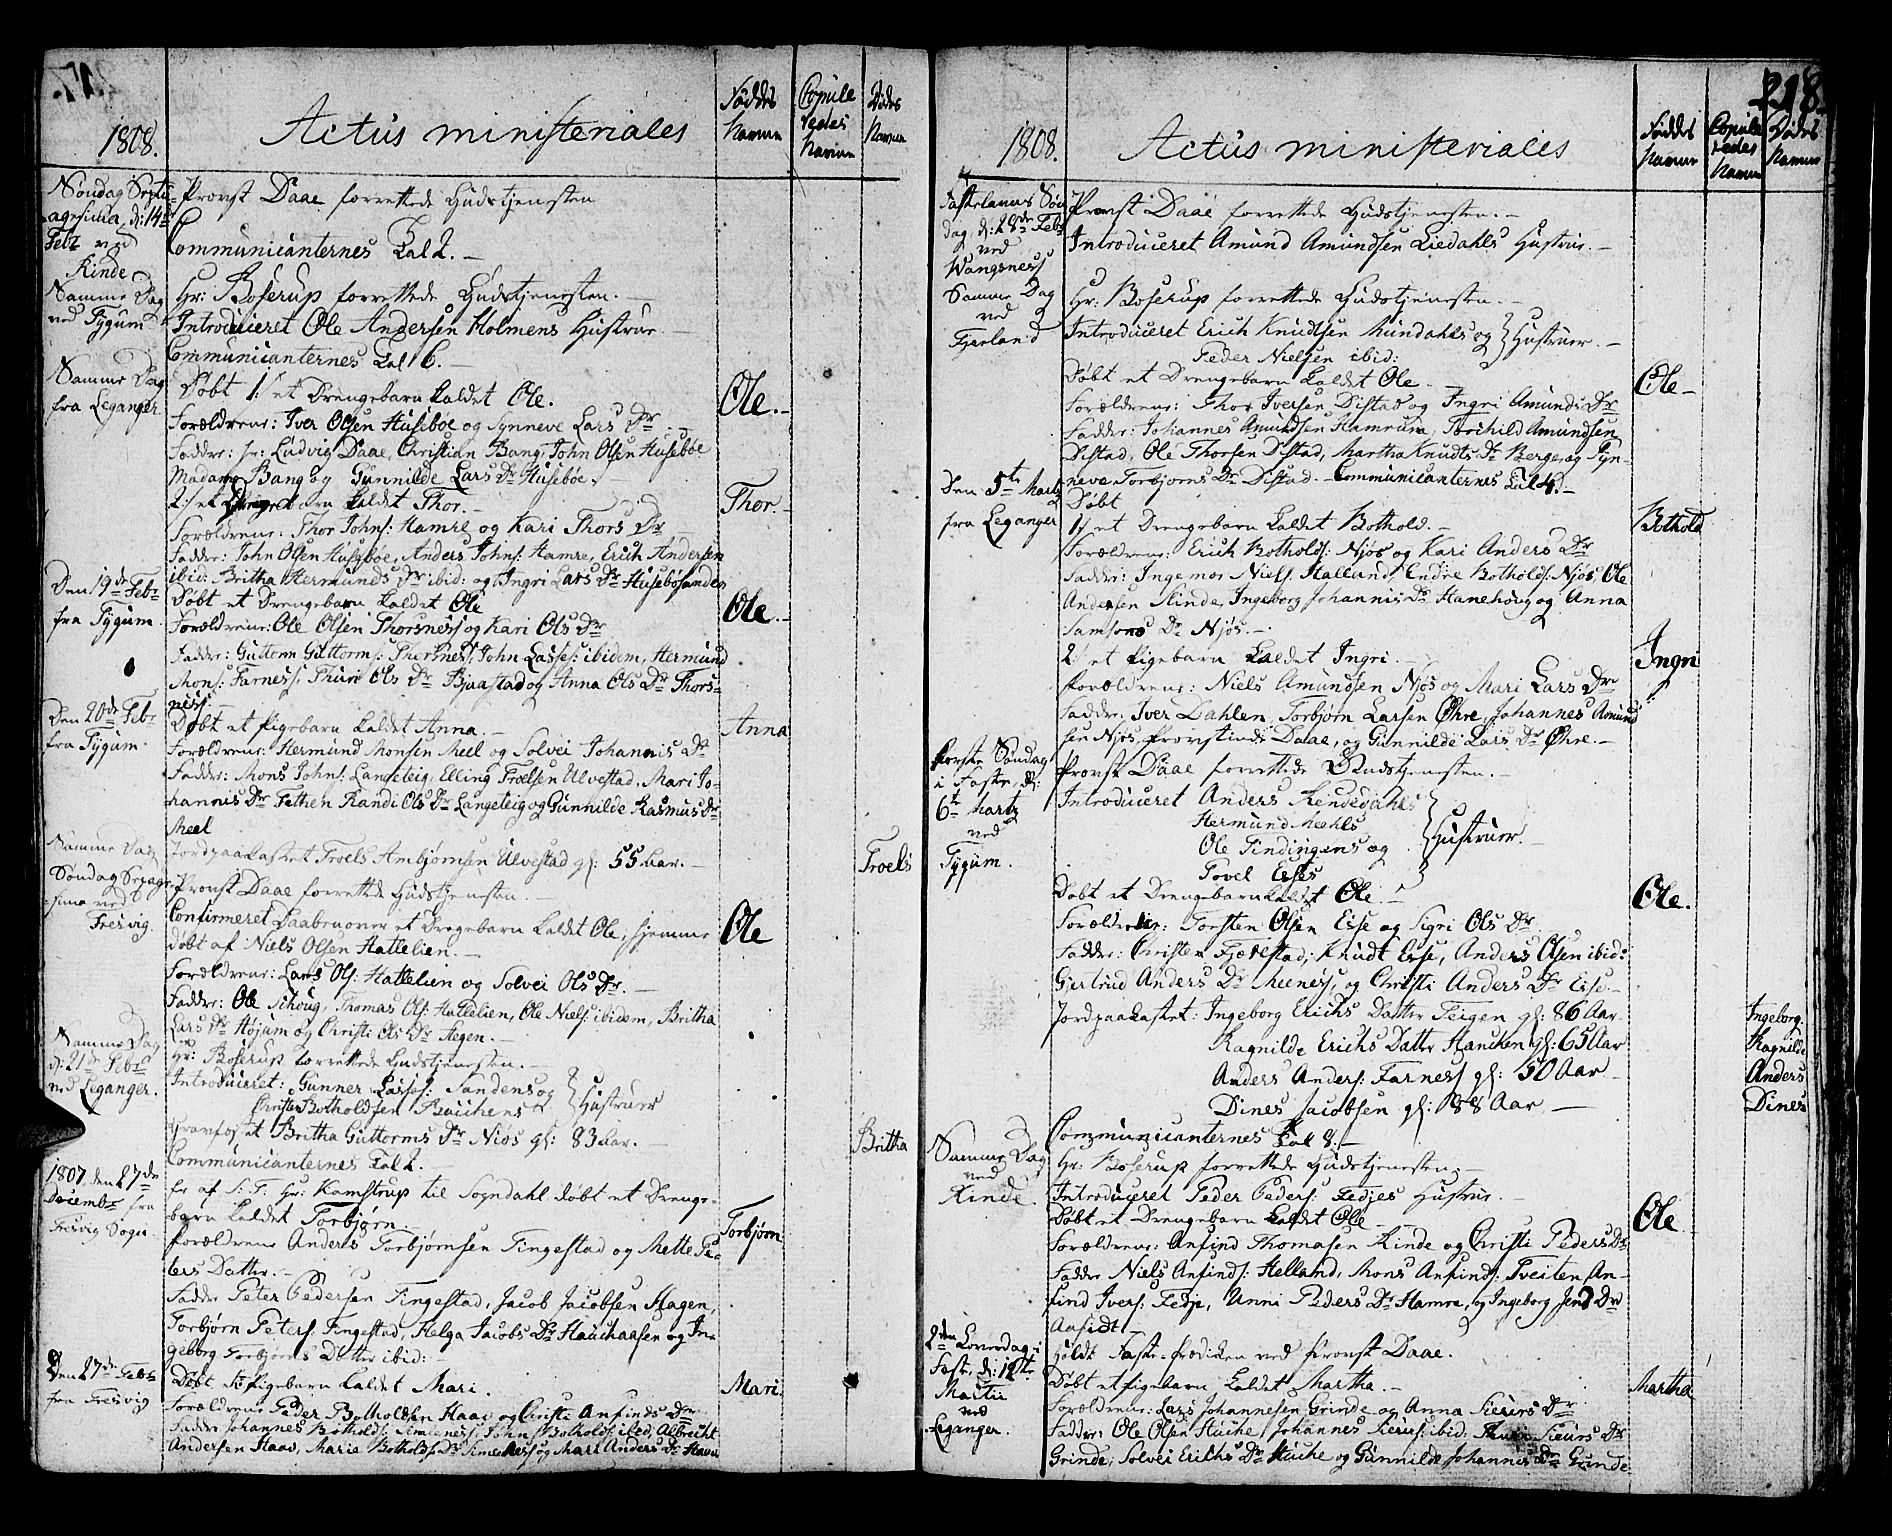 1808.
Actus ministeriales
Føddes Navne
Copule redes Navne
Dødes Navne
Søndag Septu-
agesima, d: 14de
Febr ved
Rinde
Provst Daae forrettede Gudstjenesten
Communicanternes Tal 2. –
Samme Dag
ved Tygum
Hr: Boserup forrettede Gudstjenesten. –
Introduceret Ole Andersen Holmens Hustrue. –
Communicanternes Tal 6. –
Samme Dag
fra Leganger.
Døbt 1:/ et Drengebarn kaldet Ole.
Ole. –
Forældrene: Iver Olsen Husebøe og Synneve Lars Dr
Fadder: Hr: Ludvig Daae, Christian Bang, John Olsen Husebøe
Madame Bang og Gunnilde Lars Dr Husebøe.
2:/ et Drengebarn kaldet Thor. –
Thor. –
Forældrene: Thor Johns: Hamre og Kari Thors Dr
Fadder: John Olsen Husebøe, Anders Johns: Hamre, Erich Andersen
ibid: Britha Hermunds Dr ibid: og Ingri Lars Dr Husebøsanden
Den 19de Febr
fra Tygum.
Døbt et Drengebarn kaldet Ole
Ole. –
Forældrene: Ole Olsen Thorsness og Kari Ols Dr
Fadder: Guttorm Guttorms: Thorsness, John Lasses: ibidem, Hermund
Mons: Farness, Thuri Ols Dr Bjaastad og Anna Ols Dr Thors-
ness. –
Den 20de Febr
fra Tygum.
Døbt et Pigebarn kaldet Anna. –
Anna
Forældrene: Hermund Monsen Meel og Solvei Johannis Dr
Fadder: Mons Johns: Langeteig, Elling Troelsen Ulvestad, Mari Jo-
hannis Dr Fethen Randi Ols Dr Langeteig og Gunnilde Rasmus Dr
Meel
Samme Dag
Jordpaakastet Troels Ambjørnsen Ulvestad gl: 55 Aar. –
Troels
Søndag
ved
Fresvig.
Provst Daae forrettede Gudstjenesten. –
Confirmeret Daaben over et Drengebarn kaldet Ole, hjemme
Ole
døbt af Niels Olsen Hattelien. –
Forældrene: Lars Ols: Hattelien og Solvei Ols Dr. –
Fadder: Ole Schoug, Thomas Ols: Hattelien, Ole Niels: ibidem, Britha
Lars Dr Højum og Christi Ols Dr Hegen. –
Samme Dag
d: 21de Febr
ved Leganger.
Hr: Boserup forrettede Gudstjenesten. –
Introduceret: Gunner Lasses: Sandens og
Christen Botholdsen
Hustruer
Gravfæstet Britha Guttorms Dr Niøs gl: 83 Aar. –
Britha
Communicanternes Tal 2. –
1807, den 27de
Decembr fra
Fresvig Sogn.
Er af S: T: Hr: Kamstrup til Sogndahl døbt et Drenge-
barn kaldet Torbjørn. –
Torbjørn
Forældrene Anders Torbjørnsen Tingestad og Mette Pe-
ters Datter. –
Fadder Peter Pedersen Tingestad, Jacob Jacobsen Hagen,
Torbjørn Peters: Tingestad, Helga Jacobs Dr og In-
geborg Torbjørns Datter ibid: –
Den 27de Febr
fra Fresvig
Døbt et Pigebarn kaldet Mari.
Mari.
Forældrene Peder Botholdsen Haav og Christi Anfinds Dr
Fadder Johannes Botholds: Simeness, John Botholds: ibid, Albrecht
Andersen Haav, Marie Botholds Dr Simeness og Mari Anders Dr Haav
218
1808.
Actus ministeriales
Føddes Navne
Copule redes Navne
Dødes Navne
Fastelavns Søn
dag, d: 28de Febr
ved
Wangsness
Provst Daae forrettede Gudstjenesten. –
Introduceret Amund Amundsen Liedahls Hustrue. –
Samme Dag
ved
Fjerland
Hr: Boserup forrettede Gudstjenesten. –
Introduceret Erich Knudtsen Mundahls og
Peder Nielsen ibid:
Hustruer. –
Døbt et Drengebarn kaldet Ole –
Ole –
Forældrene: Thor Iversen Distad og Ingri Amunds Dr
Fadder: Johannes Amundsen Hamrum, Torchild Amundsen
Distad, Ole Thorsen Distad, Martha Knudts Dr Berge og Syn-
neve Torbjørns Dr Distad – Communicanternes Tal 4. –
Den 5te Martz
fra Leganger
Døbt
1/ et Drengebarn kaldet Bothold. –
Bothold
Forældrene: Erich Botholds: Njøs og Kari Anders Dr
Fadder: Ingemor Niels: Halland, Endre Botholds: Njøs, Ole
Andersen Rinde, Ingeborg Johannis Dr Hanehoug og Anna
Samsons Dr Njøs. –
2:/ et Pigebarn kaldet Ingri. –
Ingri
Forældrene: Niels Amundsen Njøs og Mari Lars Dr
Fadder: Iver Dahlen, Torbjørn Larsen Øhre, Johannes Amund
sen Njøs, Provstinde Daae, og Gunnilde Lars Dr Øhre. –
Første Søndag
i Faste, d:
6te Martz
ved
Tygum.
Provst Daae forrettede Gudstjenesten. –
Introduceret Anders Rendedahls
Hermund Meehls
Ole Tindingens og
Povel Eises
Hustruer. –
Døbt et Drengebarn kaldet Ole. –
Ole.
Forældrene: Torsten Olsen Eise og Sigri Ols Dr
Fadder: Christen Fjærestad, Knudt Eise, Anders Olsen ibid:
Gjertrud Anders Dr Meenes, og Christi Anders Dr Eise –
Jordpaakastet: Ingeborg Erichs Datter Feigen gl: 86 Aar
Ingeborg.
Ragnilde Erichs Datter gl: 65 Aar
Ragnilde
Anders Anders: Farness gl: 50 Aar –
Anders
Dines Jacobsen gl: 88 Aar –
Dines
Communicanternes Tal 8. –
Samme Dag
ved
Rinde.
Hr: Boserup forrettede Gudstjenesten. –
Introduceret Peder Peders: Fedjes Hustrue. –
Døbt et Drengebarn kaldet Ole –
Ole
Forældrene: Anfind Thomasen Rinde og Christi Peders Dr
Fadder Niels Anfinds: Helland, Mons Anfinds: Tveiten An-
find Ivers: Fedje, Unni Peders Dr Hamre, og Ingeborg Dr
2den Løverdag i
Faste, d: 12te
Martii
ved
Leganger.
Holdt Faste-Prædiken ved Provst Daae.
Døbt et Pigebarn kaldet Martha. –
Martha
Forældrene: Lars Johannesen Grinde og Anna Siurs Dr
Fadder: Ole Olsen Huche, Johannes Siurs: ibid: Siurs Dr
Grinde, Solvei Erichs Dr Huche og Gunnilde Johannes Dr Grinde